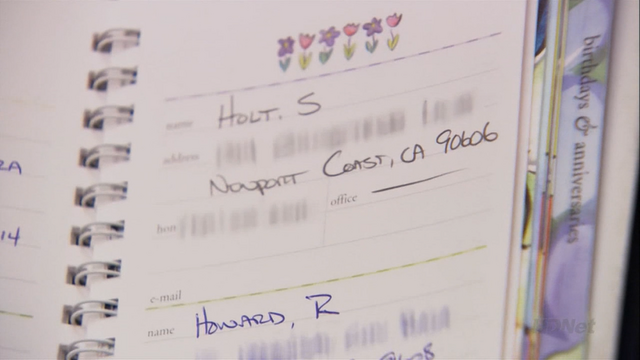 name HOLT. S
address
NEWPORT COAST, CA 90606
office
e-mail
name HOWARD, R
birthdays & anniversaries
RA
14
HDNet